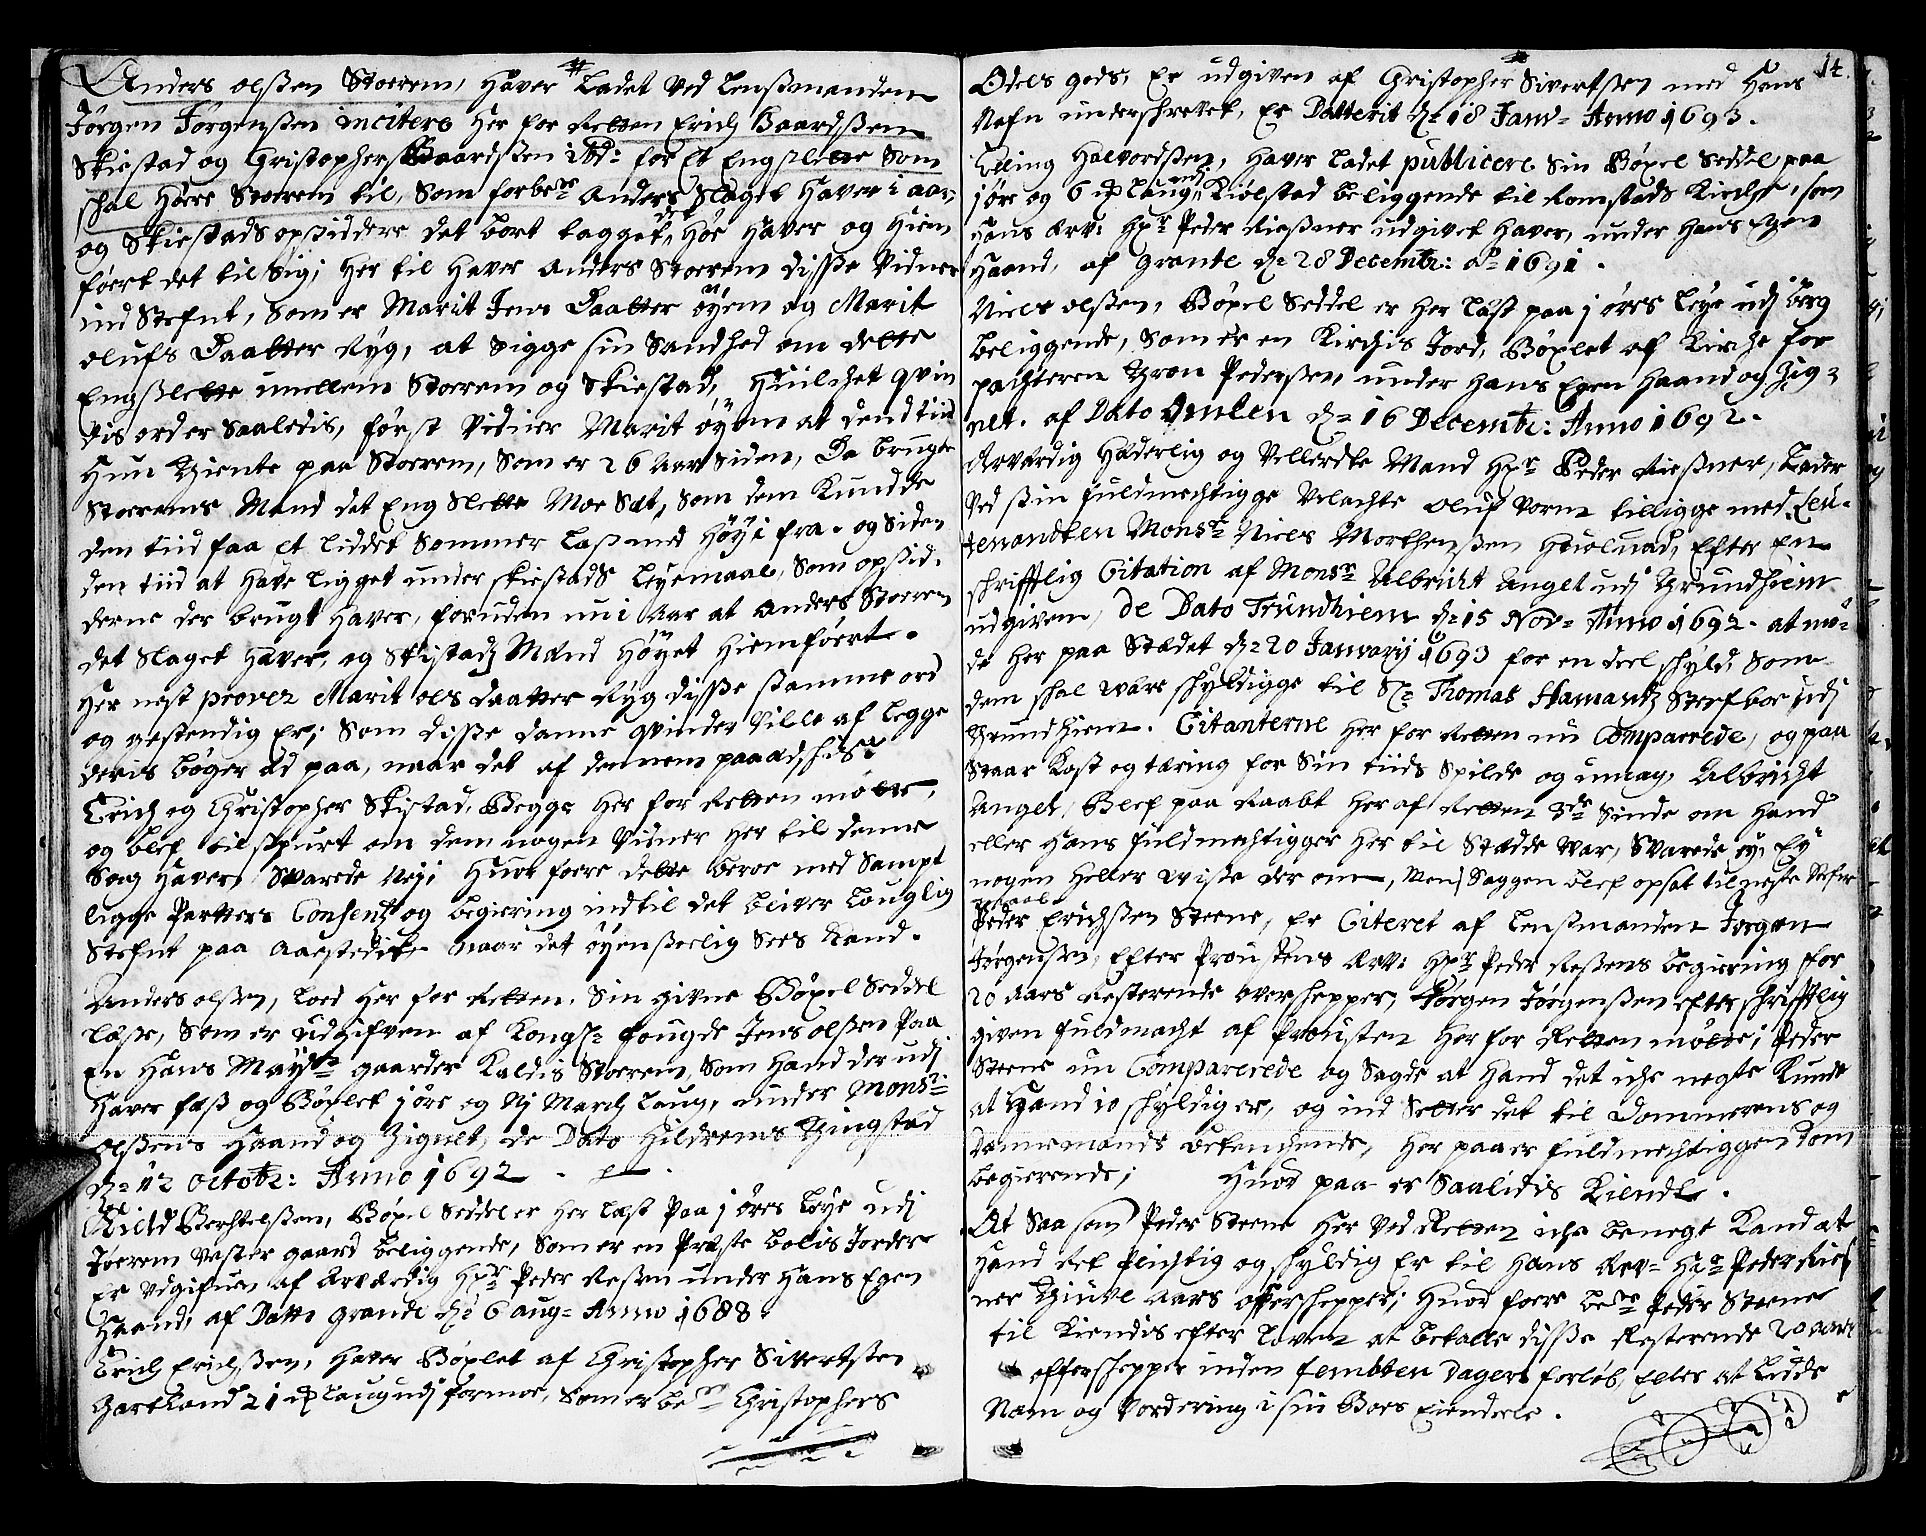 Anders olßen Stoerem, Haver ladet ved Lensmanden
Jørgen Jørgenßen incitere her for Retten Erich Baardßen
Skiestad og Christopher Baardßen ibd: for Et Engslette som
schal Høre Stoerem til, som forbete Anders Slaget Haver i aar,
og Skiestads opsiddere det bort tagget, Høe Haver og Hiem
føert det til sig; her til Haver Anders Stoerem disse Vidner
ind Stefnt, som er Marit Jens Daatter øyem og Marit
olufs Daatter Ryg, at Sigge sin Sandhed om dette
Engslette imellem Stoerem og Skiestad, Huilchet qvin
dis order Saaledis, først Vidner Marit øyem at dend tiid
Hun thiente paa Stoerem, som er 26 Aar Siden, Da brugte
Stoerems Mand det Eng Slette Moe Sæt, som dem Kunde
den tiid faa et liddet Sommer Las med Høy i fra. og Siden
den tiid at Have ligget under Skiestads leyemaal, som opsid-
derne der brugt Haver, foruden nu i Aar at Anders Stoerem
det Slaget Haver, og Skistads Mænd Høyet Hiemføert.
Her nest prover Marit ols Daatter Ryg disse samme ord
og gestendig Er; Som disse danne qvinder Ville af legge
deris bøger Ed paa, naar det af dennem paaadschis.
Erich og Christopher Skistad, Begge Her for Retten møtte,
og blef tilspurt om dem nogen Vidner Her til denne
Sag Haver, Svarede Ney; Huor foere dette beroe med Sampt
ligge Parters Consentz og begiering indtil det bliver louglig
Stefnt paa Aastedit, naar det øyenseelig Sees Kand.
Anders olßen, loed Her for Retten, Sin givne Bøxel Seddel
læse, Som er udgifven af Kongl: fougde Jens olßen Paa
En Hans Maytz gaarder Kaldis Stoerem, Som Hand der udj
Haver fæst og Bøxlet j øre og Nj March laug, under Monsr:
olßens Haand og Zignet, de Dato Hildrems Thingstad
d: 12 octobr: Anno 1692.
Kield Berthelßen, Bøxel Seddel er her læst Paa j øres leye udj
Jøerem Vester gaard beliggende, Som er en Præste bolis Jorder
Er Udgifven af Erværdig Hr Peder Reßen under Hans Egen
Haand, af Datto grande d: 6 aug: Anno 1688.
Erich Erichßen, Haver Bøxlet af Christopher Sivertßen
Gartland 21 laug udj formoe, Som er bete Christophers
14.
Odels gods, Er udgiven af Christopher Sivertßen med Hans
Nafn underschrevet, Er Datterit d: 18 Janv: Anno 1693.
Elling Halvordßen, Haver ladet publicere Sin Bøxel Seddel paa
j øre og 6 laug udj Kiølstad beliggende til Romstads Kirche, som
Hans Erv: Hr Peder Rießner udgivet Haver, under Hans Egen
Haand, af grande d: 28 Decembr: Ao 1691.
Niels olßen, Bøxel Seddel er Her læst paa j øres leye udj berg
beliggende, Som er en Kirchis Jord, Bøxlet af Kirche for
pachteren Thron Pederßen, under Hans Egen Haand og Zig-
net. af Dato Ømlen d: 16 Decembr: Anno 1692.
Erværdig Hæderlig og Vellerdte Mand Hr Peder Rießner, Lader
Ved sin fuldmechtigge Velachte Oluf Vorm tilligge med Leu-
tenandten Monsr Niels Morthenßen Houlnad, Efter en
schrifftlig Citation af Monsr Albricht Angel udj Thrundhiem
udgiven, de Dato Trundhiem d: 15 Nov: Anno 1692. at mø-
de Her paa Stædet d: 20 Janvarij 1693 for en deel schyld, Som
dem schal være schyldigge til Sl: Thomas Hamands Sterfboe udj
Thrundhiem. Citanterne Her for Retten nu Comparerede, og paa
Staar Kost og tæring for Sin tiids Spilde og umag, Albricht
Angel, Blef paa Raabt Her af Retten 3de Sinde om Hand
eller Hans fuldmechtigger Her til Stædde var, Svarede ey, Ey
nogen Heller viste der om, Menj Saggen blef opsat til neste Stefne
maal
Peder Erichßen Steene, Er Citeret af Lensmanden Jørgen
Jørgenßen, Efter Proustens Erv: Hr Peder Reßens begiering for
20 Aars Resterende overschepper, Jørgen Jørgenßen efter schrifftlig
given fuldmacht af Prousten Her for Retten møtte; Peder
Steene nu Comparerede og Sagde at Hand det iche negte Kunde
at Hand jo schyldig er, og ind Setter det til Dommerens og
Dannemænds betenchende, Her paa er fuldmechtiggen dom
begierende; Huor paa er Saalidis Kiendt.
At Saa som Peder Steene Her Ved Retten iche benegte Kand at
Hand det Plichtig og schyldig Er til Hans Erv: Hr Peder Ries
ner Thiuve Aars offerschepper; Huor foere bete Peder Steene
til Kiendis efter loven at betalle disse Resterende 20 aars
offerschepper inden femtten Dagers forløb, Eller at lidde
Nam og Vordering i sin Boes Eiendeele.